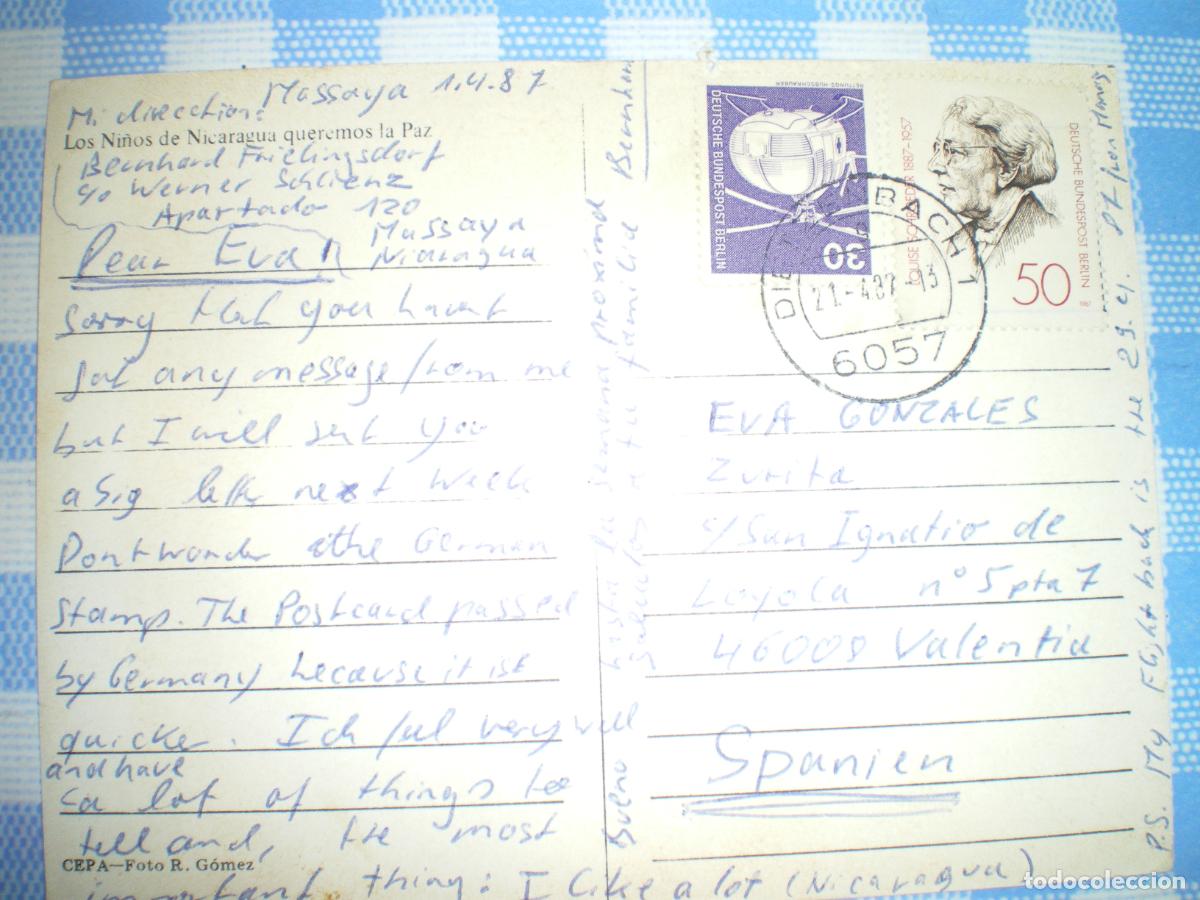 Massaya 1.4.87
Mi direction:
Los Niños de Nicaragua queremos la Paz
Bernhard Frielingsdorf
c/o Werner Schlienz
Apartado 120
Massaya
Nicaragua
Dear Eva
sorry that you havent
got any message from me
but I will sent you
a big letter next week
Dont wonder the German
stamp. The Postcard passed
by Germany because it ist
quicker. Ich feel very well
and have
a lot of things to
tell and, the most
important thing: I like a lot (Nicaragua)
CEPA—Foto R. Gómez
Bueno hasta la semana proxima
saludos a tu familia Bernhard
RETTUNGS-HUBSCHRAUBER
DEUTSCHE BUNDESPOST BERLIN
30
LOUISE SCHROEDER 1887-1957
DEUTSCHE BUNDESPOST BERLIN
50
BACH 1
21.-4.87-13
6057
EVA GONZALES
Zurita
c/San Ignatio de
Loyola n° 5 pta 7
46008 Valentia
Spanien
P.S. My Flight back is the 29.4.
todocoleccion